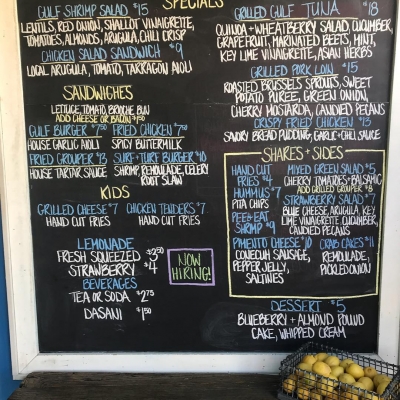 SPECIALS
GULF SHRIMP SALAD $15
LENTILS, RED ONION, SHALLOT VINAIGRETTE,
TOMATOES, ALMONDS, ARUGULA, CHILI CRISP
CHICKEN SALAD SANDWICH $9
LOCAL ARUGULA, TOMATO, TARRAGON AIOLI
SANDWICHES
LETTUCE, TOMATO, BRIOCHE BUN
ADD CHEESE OR BACON $1.50
GULF BURGER $7.50 FRIED CHICKEN 7.50
HOUSE GARLIC AIOLI SPICY BUTTERMILK
FRIED GROUPER $13 SURF + TURF BURGER $10
HOUSE TARTAR SAUCE SHRIMP, REMOULADE, CELERY
ROOT SLAW
KIDS
GRILLED CHEESE $7 CHICKEN TENDERS $7
HAND CUT FRIES HAND CUT FRIES
LEMONADE
FRESH SQUEEZED $3.50
STRAWBERRY $4
BEVERAGES
TEA OR SODA $2.75
DASANI $1.50
NOW
HIRING!
GRILLED GULF TUNA $18
QUINOA + WHEATBERRY SALAD CUCUMBER,
GRAPEFRUIT, MARINATED BEETS, MINT,
KEY LIME VINAIGRETTE, ASIAN HERBS
GRILLED PORK LOIN $15
ROASTED BRUSSELS SPROUTS, SWEET
POTATO PUREE, GREEN ONION,
CHERRY MOSTARDA, CANDIED PECANS
CRISPY FRIED CHICKEN $13
SAVORY BREAD PUDDING, GARLIC + CHILI SAUCE
SHARES + SIDES
HAND CUT
FRIES $4
HUMMUS $7
PITA CHIPS
PEEL & EAT
SHRIMP $9
PIMENTO CHEESE $10
CONECUH SAUSAGE,
PEPPER JELLY,
SALTINES
MIXED GREEN SALAD $5
CHERRY TOMATOES + BALSAMIC
ADD GRILLED GROUPER $8
STRAWBERRY SALAD $7
BLUE CHEESE, ARUGULA, KEY
LIME VINAIGRETTE CUCUMBER,
CANDIED PECANS
CRAB CAKES $11
REMOULADE,
PICKLED ONION
DESSERT $5
BLUEBERRY + ALMOND POUND
CAKE, WHIPPED CREAM